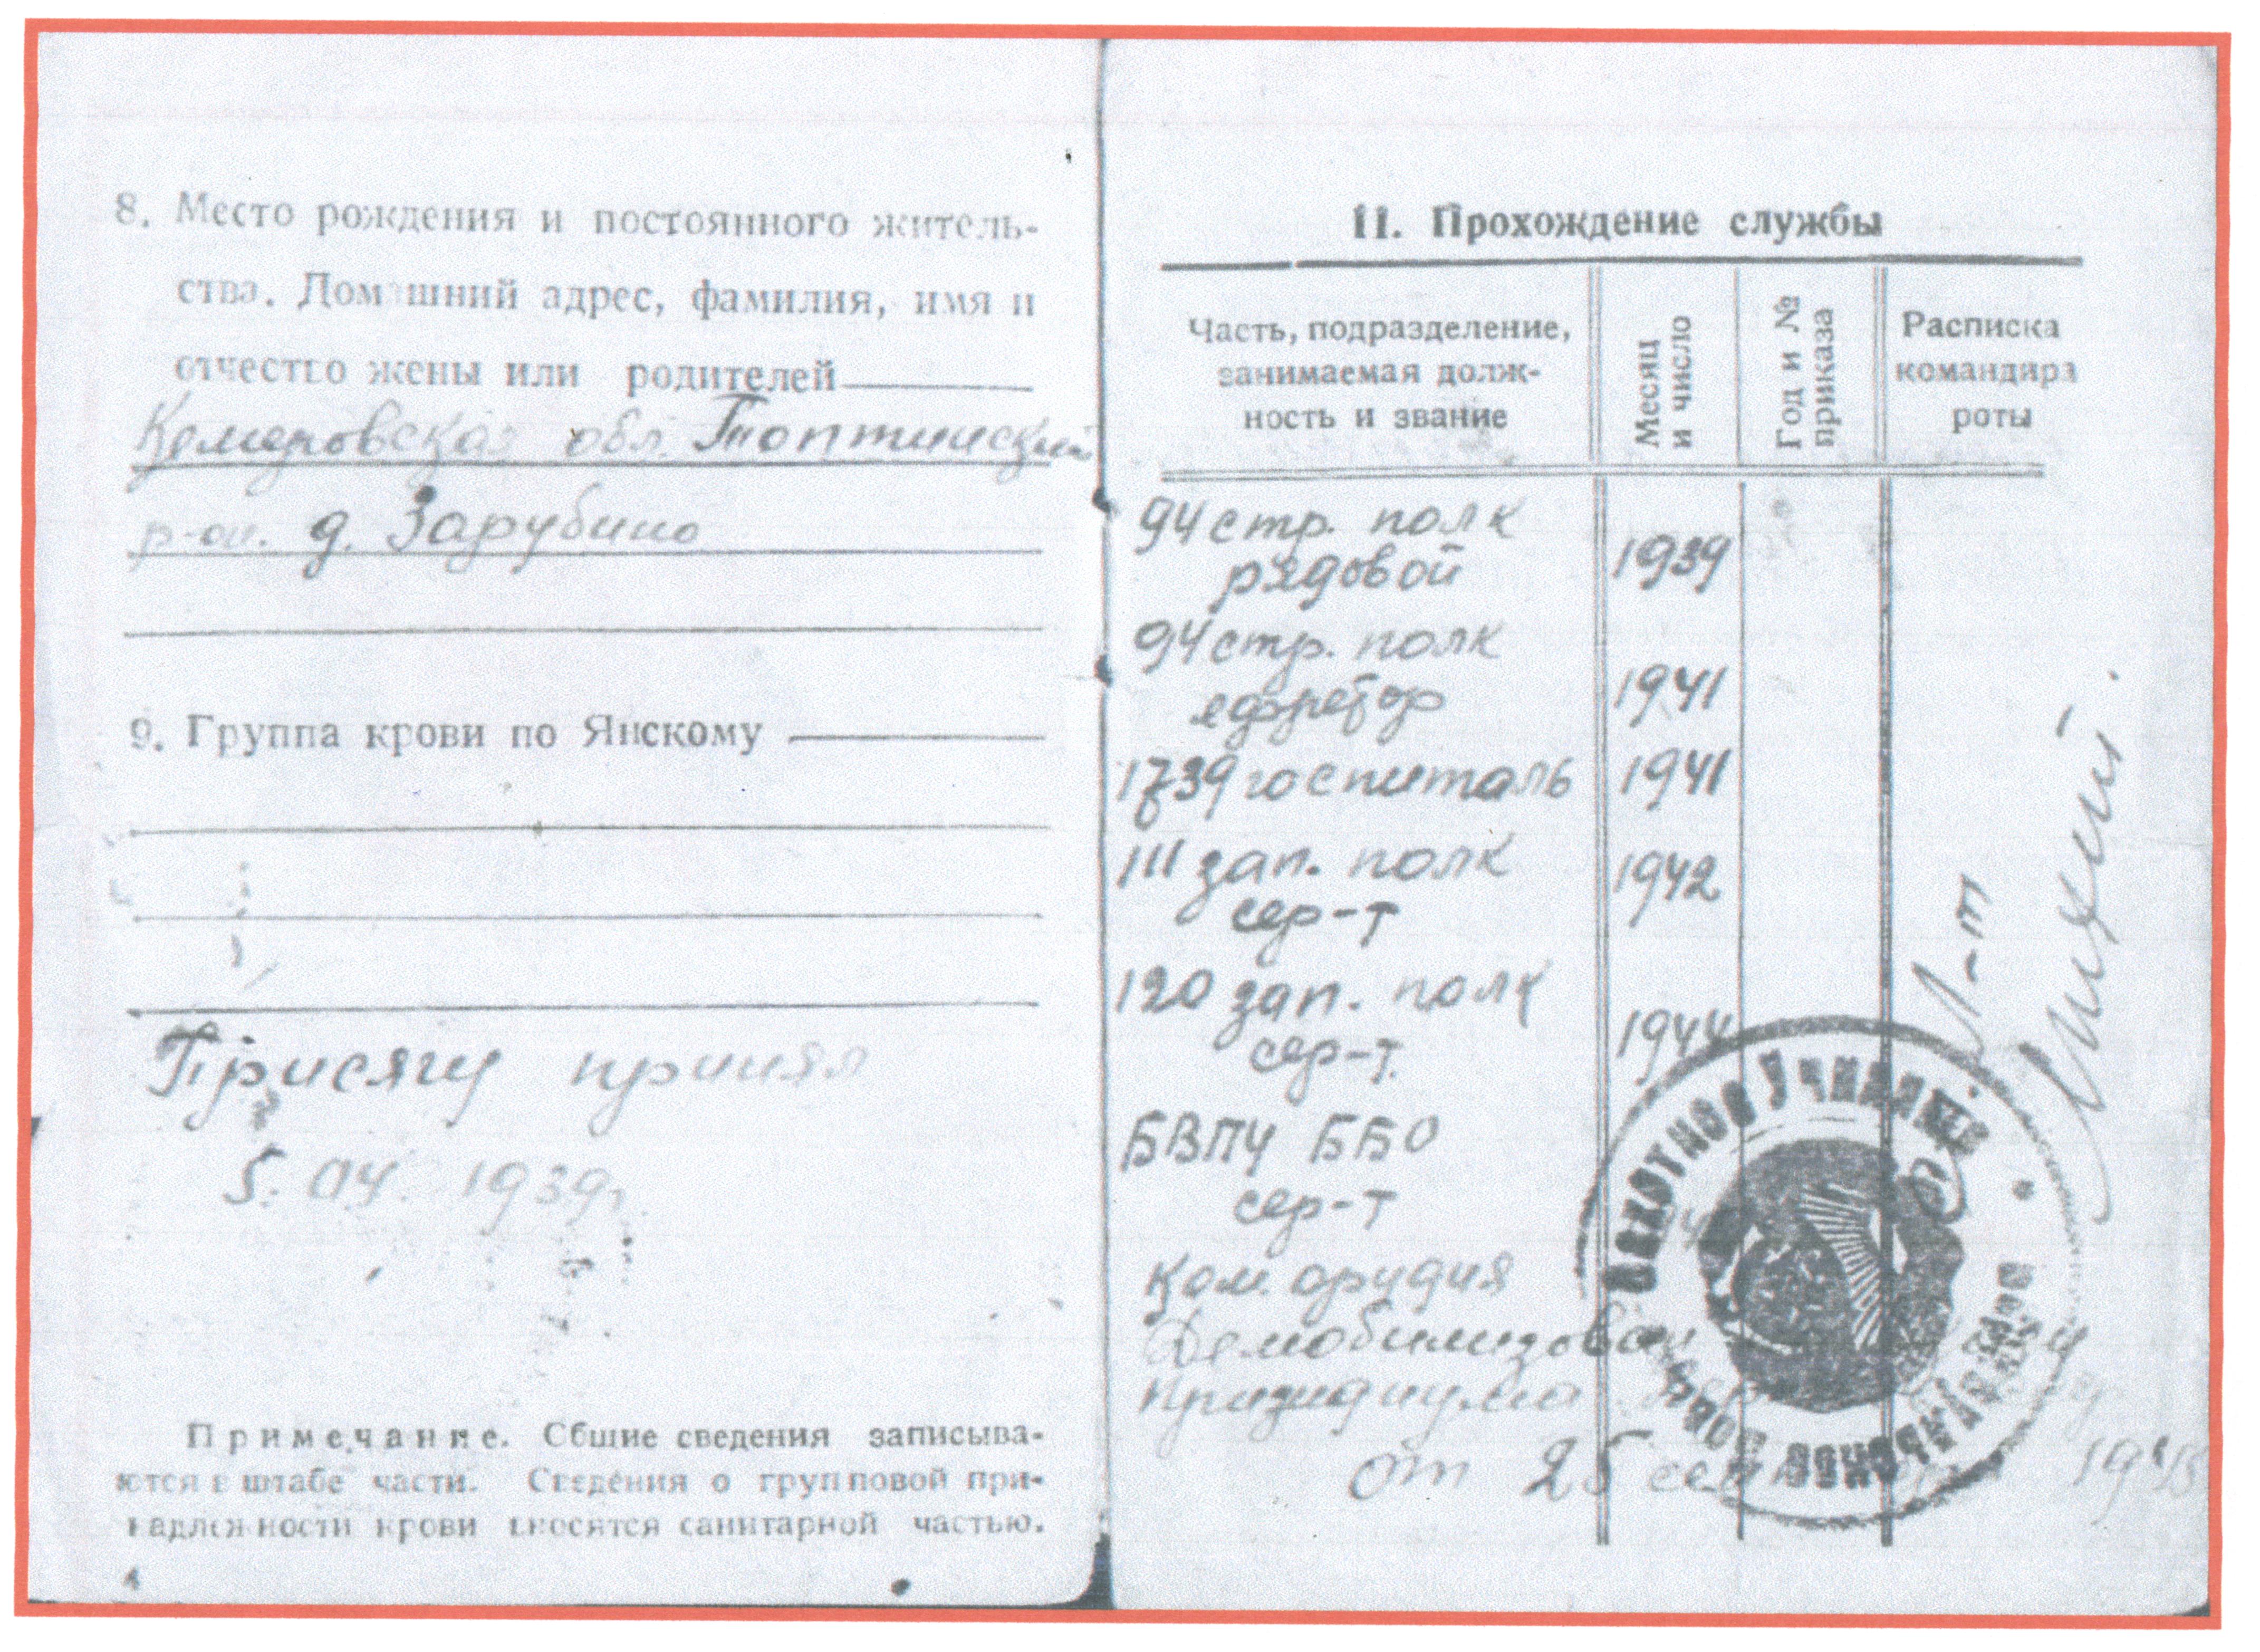 8. Место рождения и постоянного житель-
ства. Домашний адрес, фамилия, имя и
отчество жены или родителей
Кемеровская обл. Топкинский
р-он. д. Зарубино
9. Группа крови по Янскому
Присягу принял
5. 04. 1939г.
Примечание. Сбщие сведения записыва-
ются в штабе части. Сведения о групповой при-
надлежности крови вносятся санитарной частью.
4
II. Прохождение службы
Часть, подразделение, занимаемая долж-
ность и звание
Месяц и число
Год и № приказа
Расписка командира роты
94 стр. полк
рядовой 1939
94 стр. полк
ефрейтор 1941
1739 госпиталь 1941
111 зап. полк
сер-т 1942
120 зап. полк
сер-т. 1944
БВПУ ББО
сер-т
Ком. орудия
Демобилизован
Призидиума
от 25 1945
Л-т
ПЕХОТНОЕ УЧИЛИЩЕ